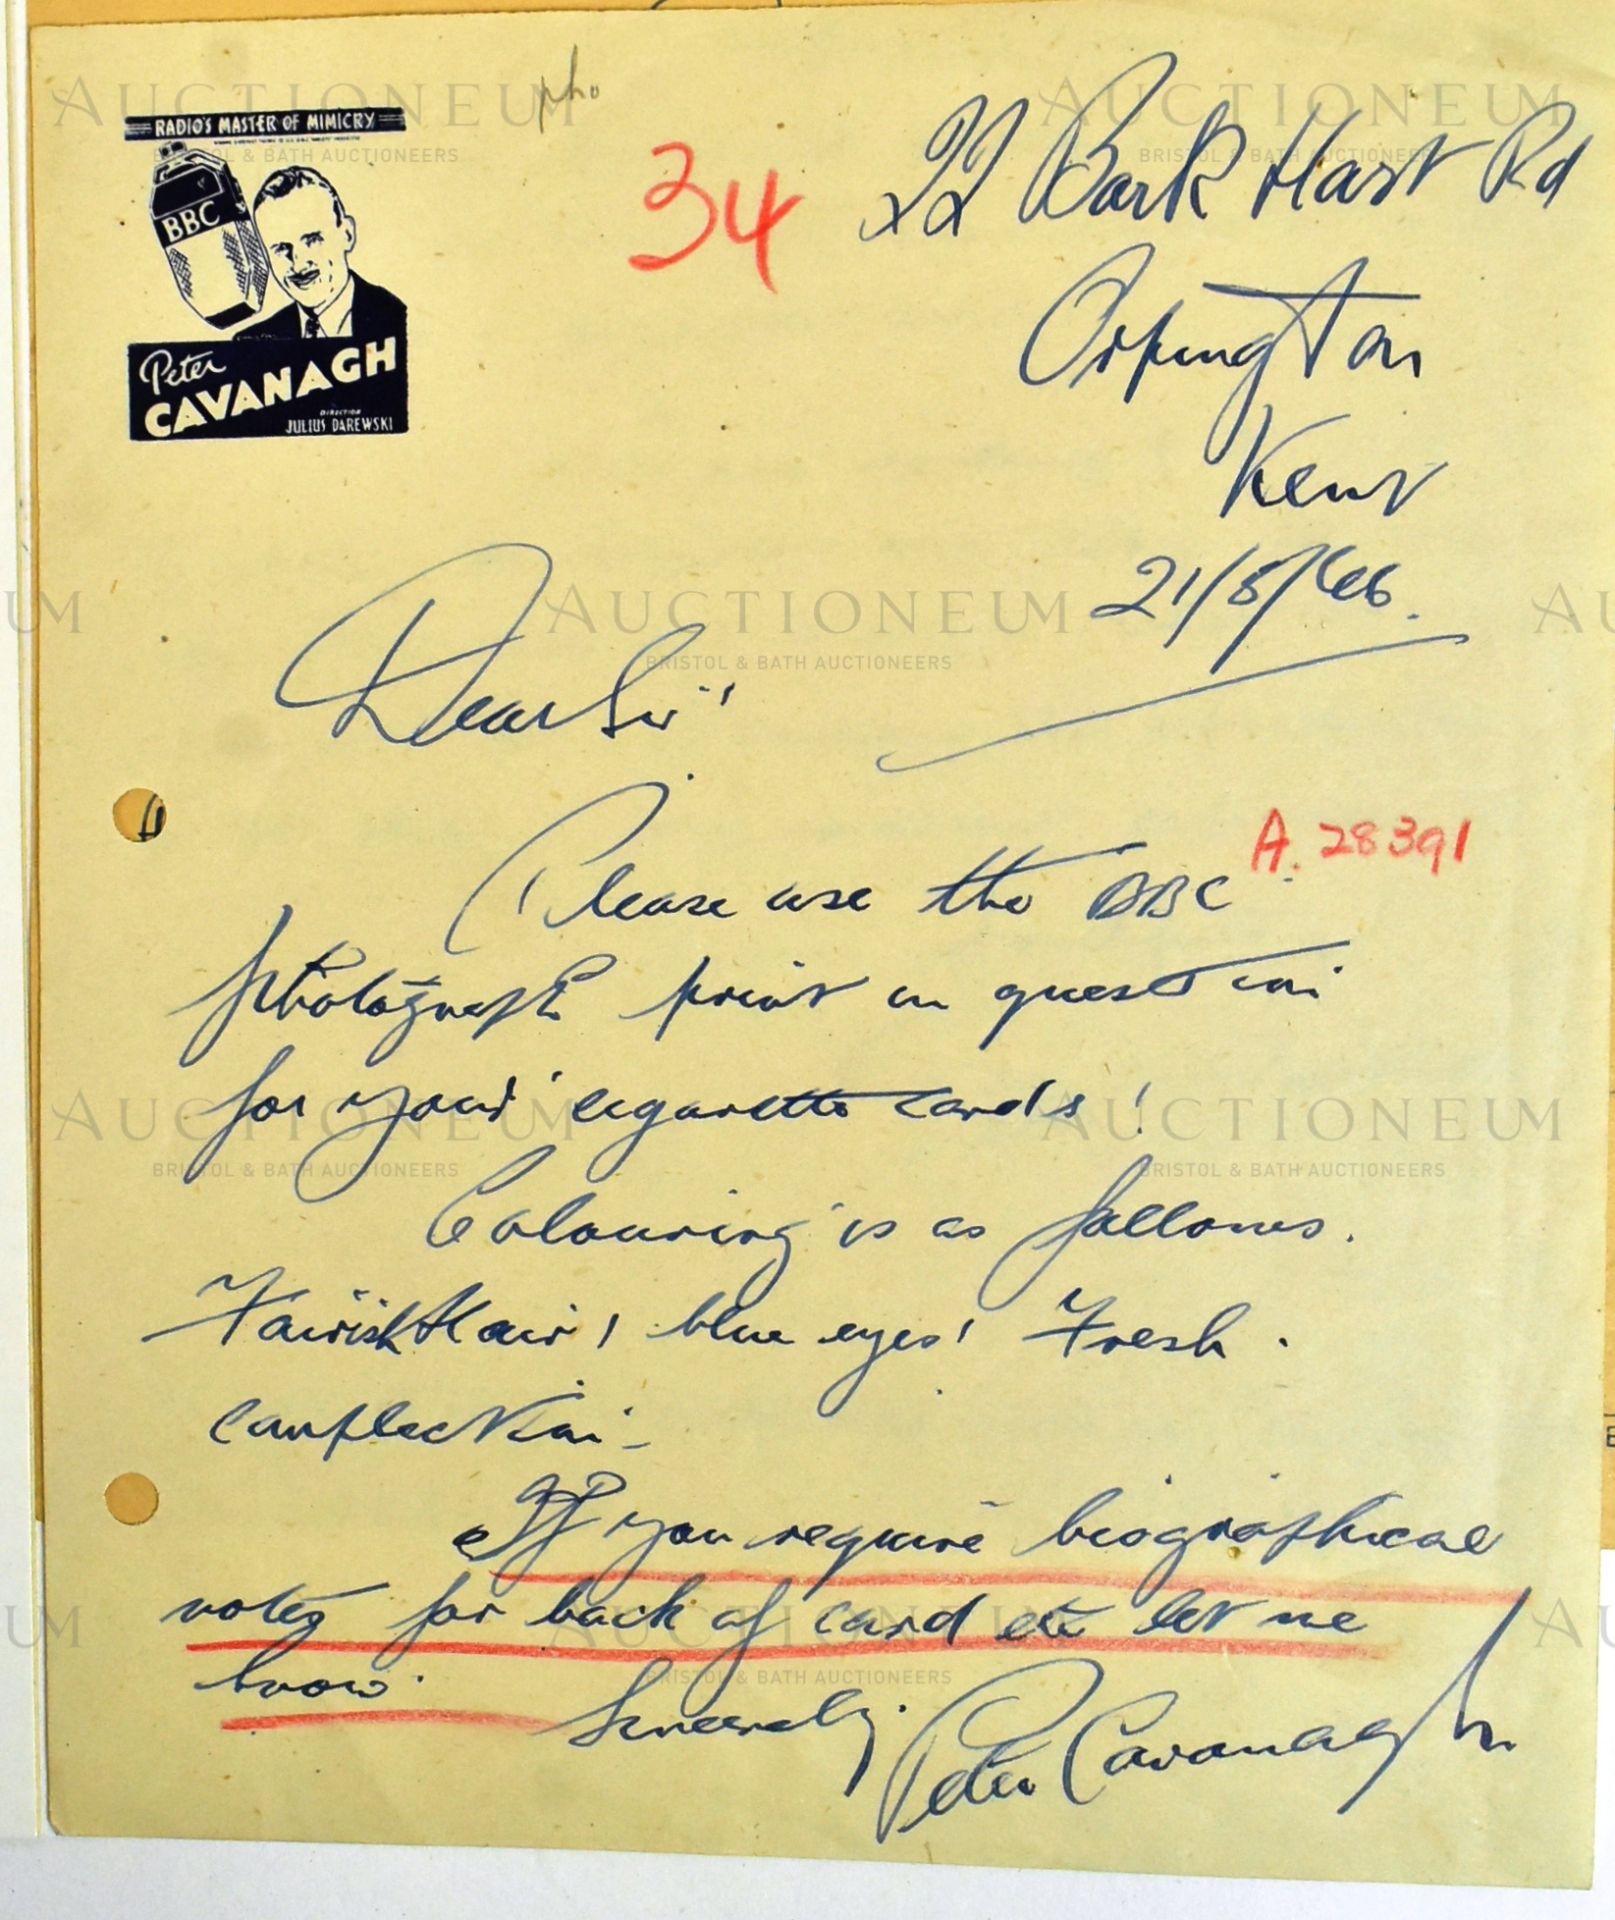 pho
RADIO'S MASTER OF MIMICRY
BBC
Peter
CAVANAGH
DIRECTION
JULIUS DAREWSKI
34
22 Bark Hart Rd
Orpington
Kent
21/8/46.
Dear Sir,
A. 28391
Please use the BBC
photograph print in question
for your cigarette cards!
Colouring is as follows.
Fairish Hair, blue eyes, Fresh
complection.
If you require biographical
notes for back of card etc let me
know.
Sincerely.
Peter Cavanagh.
AUCTIONEUM
BRISTOL & BATH AUCTIONEERS